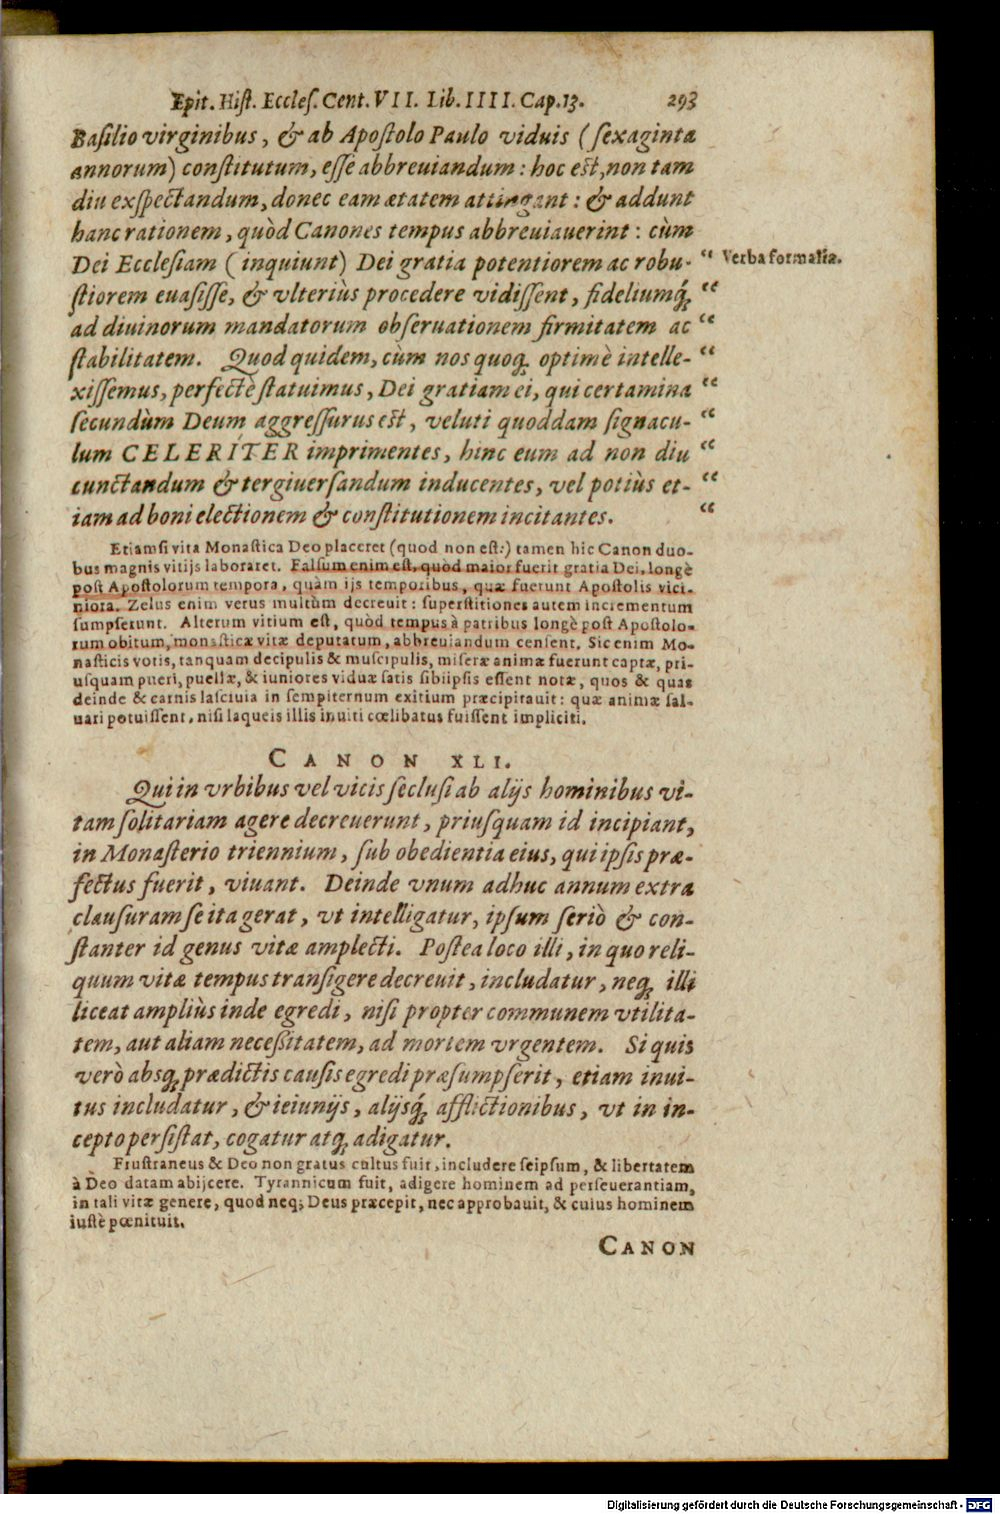 Epit. Hist. Eccles. Cent. VII. Lib. IIII. Cap. 13. 293
Basilio virginibus, & ab Apostolo Paulo viduis (sexaginta
annorum) constitutum, esse abbreuiandum: hoc est, non tam
diu exspectandum, donec eam ætatem attingant: & addunt
hanc rationem, quòd Canones tempus abbreuiauerint: cùm
Dei Ecclesiam (inquiunt) Dei gratia potentiorem ac robu- “ Verba formalia.
stiorem euasisse, & vlteriùs procedere vidissent, fideliumq́; “
ad diuinorum mandatorum obseruationem firmitatem ac “
stabilitatem. Quod quidem, cùm nos quoq; optimè intelle- “
xissemus, perfectè statuimus, Dei gratiam ei, qui certamina “
secundùm Deum aggressurus est, veluti quoddam signacu- “
lum CELERITER imprimentes, hinc eum ad non diu “
cunctandum & tergiuersandum inducentes, vel potiùs et- “
iam ad boni electionem & constitutionem incitantes. “
Etiamsi vita Monastica Deo placeret (quod non est:) tamen hic Canon duo-
bus magnis vitijs laboraret. Falsum enim est, quòd maior fuerit gratia Dei, longè
post Apostolorum tempora, quàm ijs temporibus, quæ fuerunt Apostolis vici-
niora. Zelus enim verus multùm decreuit: superstitiones autem incrementum
sumpserunt. Alterum vitium est, quòd tempus à patribus longè post Apostolo-
rum obitum, monasticæ vitæ deputatum, abbreuiandum censent. Sic enim Mo-
nasticis votis, tanquam decipulis & muscipulis, miseræ animæ fuerunt captæ, pri-
usquam pueri, puellæ, & iuniores viduæ satis sibiipsis essent notæ, quos & quas
deinde & carnis lasciuia in sempiternum exitium præcipitauit: quæ animæ sal-
uari potuissent, nisi laqueis illis inuiti cœlibatus fuissent impliciti.
CANON XLI.
Qui in vrbibus vel vicis seclusi ab alijs hominibus vi-
tam solitariam agere decreuerunt, priusquam id incipiant,
in Monasterio triennium, sub obedientia eius, qui ipsis præ-
fectus fuerit, viuant. Deinde vnum adhuc annum extra
clausuram se ita gerat, vt intelligatur, ipsum seriò & con-
stanter id genus vitæ amplecti. Postea loco illi, in quo reli-
quum vitæ tempus transigere decreuit, includatur, neq; illi
liceat ampliùs inde egredi, nisi propter communem vtilita-
tem, aut aliam necessitatem, ad mortem vrgentem. Si quis
verò absq; prædictis causis egredi præsumpserit, etiam inui-
tus includatur, & ieiunijs, alijsq́; afflictionibus, vt in in-
cepto persistat, cogatur atq; adigatur.
Frustraneus & Deo non gratus cultus fuit, includere seipsum, & libertatem
à Deo datam abijcere. Tyrannicum fuit, adigere hominem ad perseuerantiam,
in tali vitæ genere, quod neq; Deus præcepit, nec approbauit, & cuius hominem
iustè pœnituit.
CANON
Digitalisierung gefördert durch die Deutsche Forschungsgemeinschaft - DFG